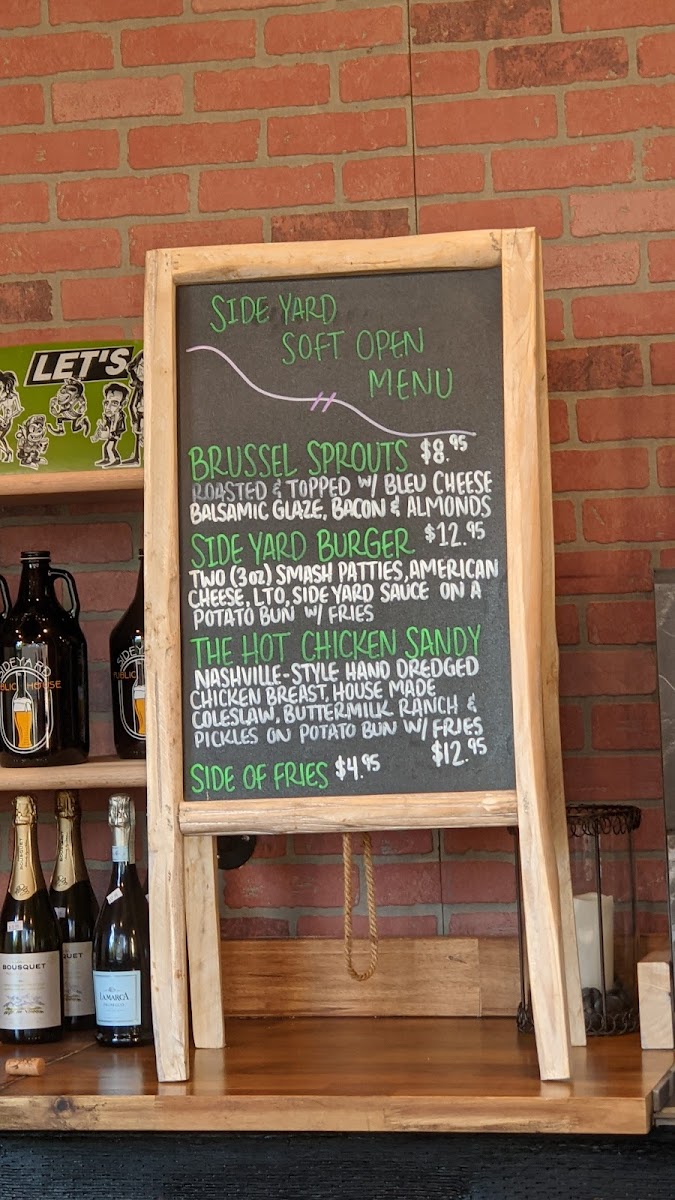 SIDE YARD
SOFT OPEN
MENU
BRUSSEL SPROUTS $8.95
ROASTED & TOPPED W/ BLEU CHEESE
BALSAMIC GLAZE, BACON & ALMONDS
SIDE YARD BURGER $12.95
TWO (3oz) SMASH PATTIES, AMERICAN
CHEESE, LTO, SIDE YARD SAUCE ON A
POTATO BUN W/ FRIES
THE HOT CHICKEN SANDY
NASHVILLE-STYLE HAND DREDGED
CHICKEN BREAST, HOUSE MADE
COLESLAW, BUTTERMILK RANCH &
PICKLES ON POTATO BUN W/ FRIES
$12.95
SIDE OF FRIES $4.95
LET'S
SIDEYARD
PUBLIC HOUSE
BOUSQUET
LAMARCA